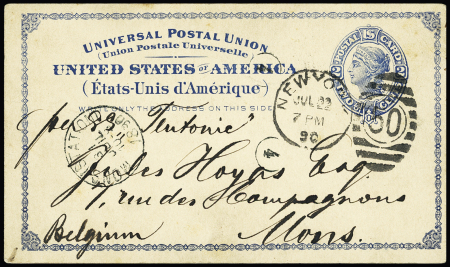 UNIVERSAL POSTAL UNION
(Union Postale Universelle)
UNITED STATES OF AMERICA
(États-Unis d'Amérique)
WRITE ONLY THE ADDRESS ON THIS SIDE
U.S. POSTAL CARD
TWO CENTS
NEW YO
JUL 22
7 PM
90
4
per "Teutonic"
Jules Hoyas Esq.
1, rue des Compagnons
Mons.
Belgium